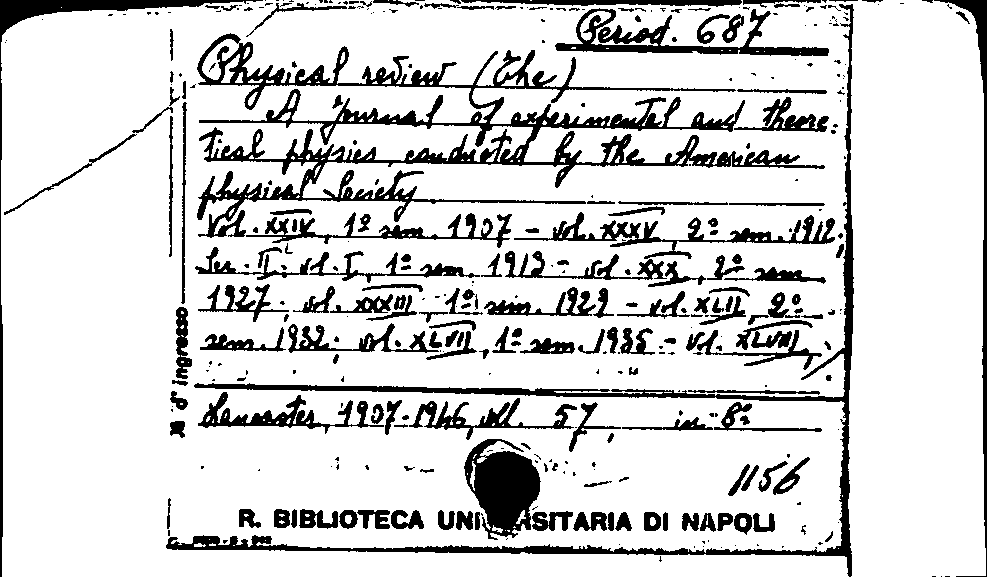 Period. 687
Physical review (The)
A Journal of experimental and theore-
tical physics conducted by the American
physical Society
Vol. XXIV, 1º sem. 1907 - vol. XXXV, 2º sem. 1912;
Ser. II: vol. I, 1º sem. 1913 - vol. XXX, 2º sem.
1927; vol. XXXIII, 1º sem. 1929 - vol. XLII, 2º
sem. 1932; vol. XLVII, 1º sem. 1935 - vol. XLVIII,
Lancaster, 1907-1946, voll. 57, in-8º
1156
d'ingresso
R. BIBLIOTECA UNIVERSITARIA DI NAPOLI